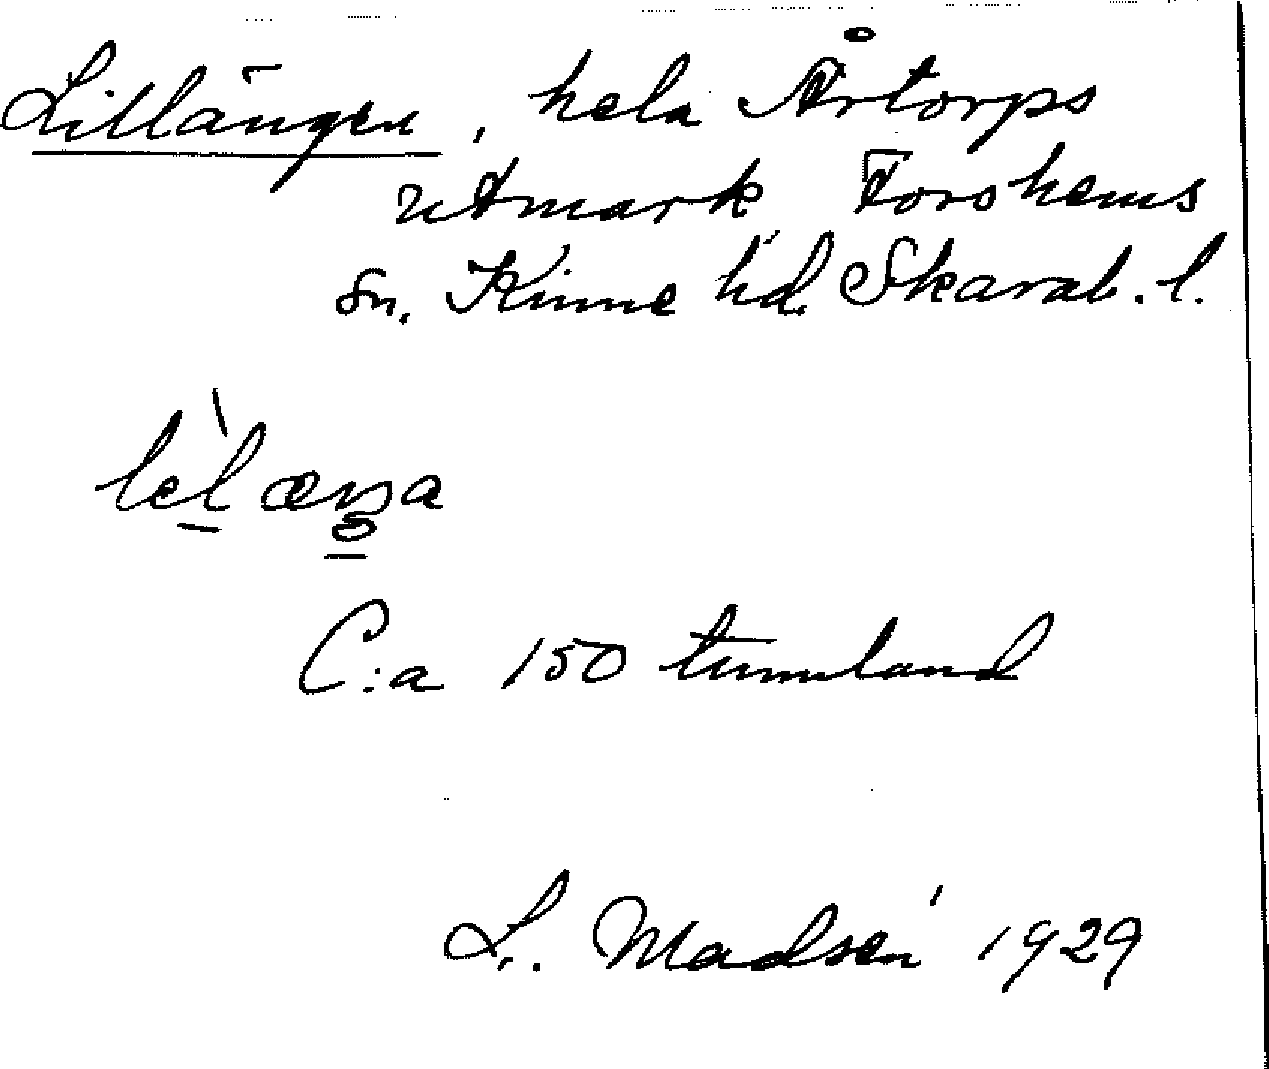 Lillängen, hela Årtorps
utmark Forshems
sn. Kinne hd Skarab. l.
C:a 150 tunnland
L. Madsén 1929